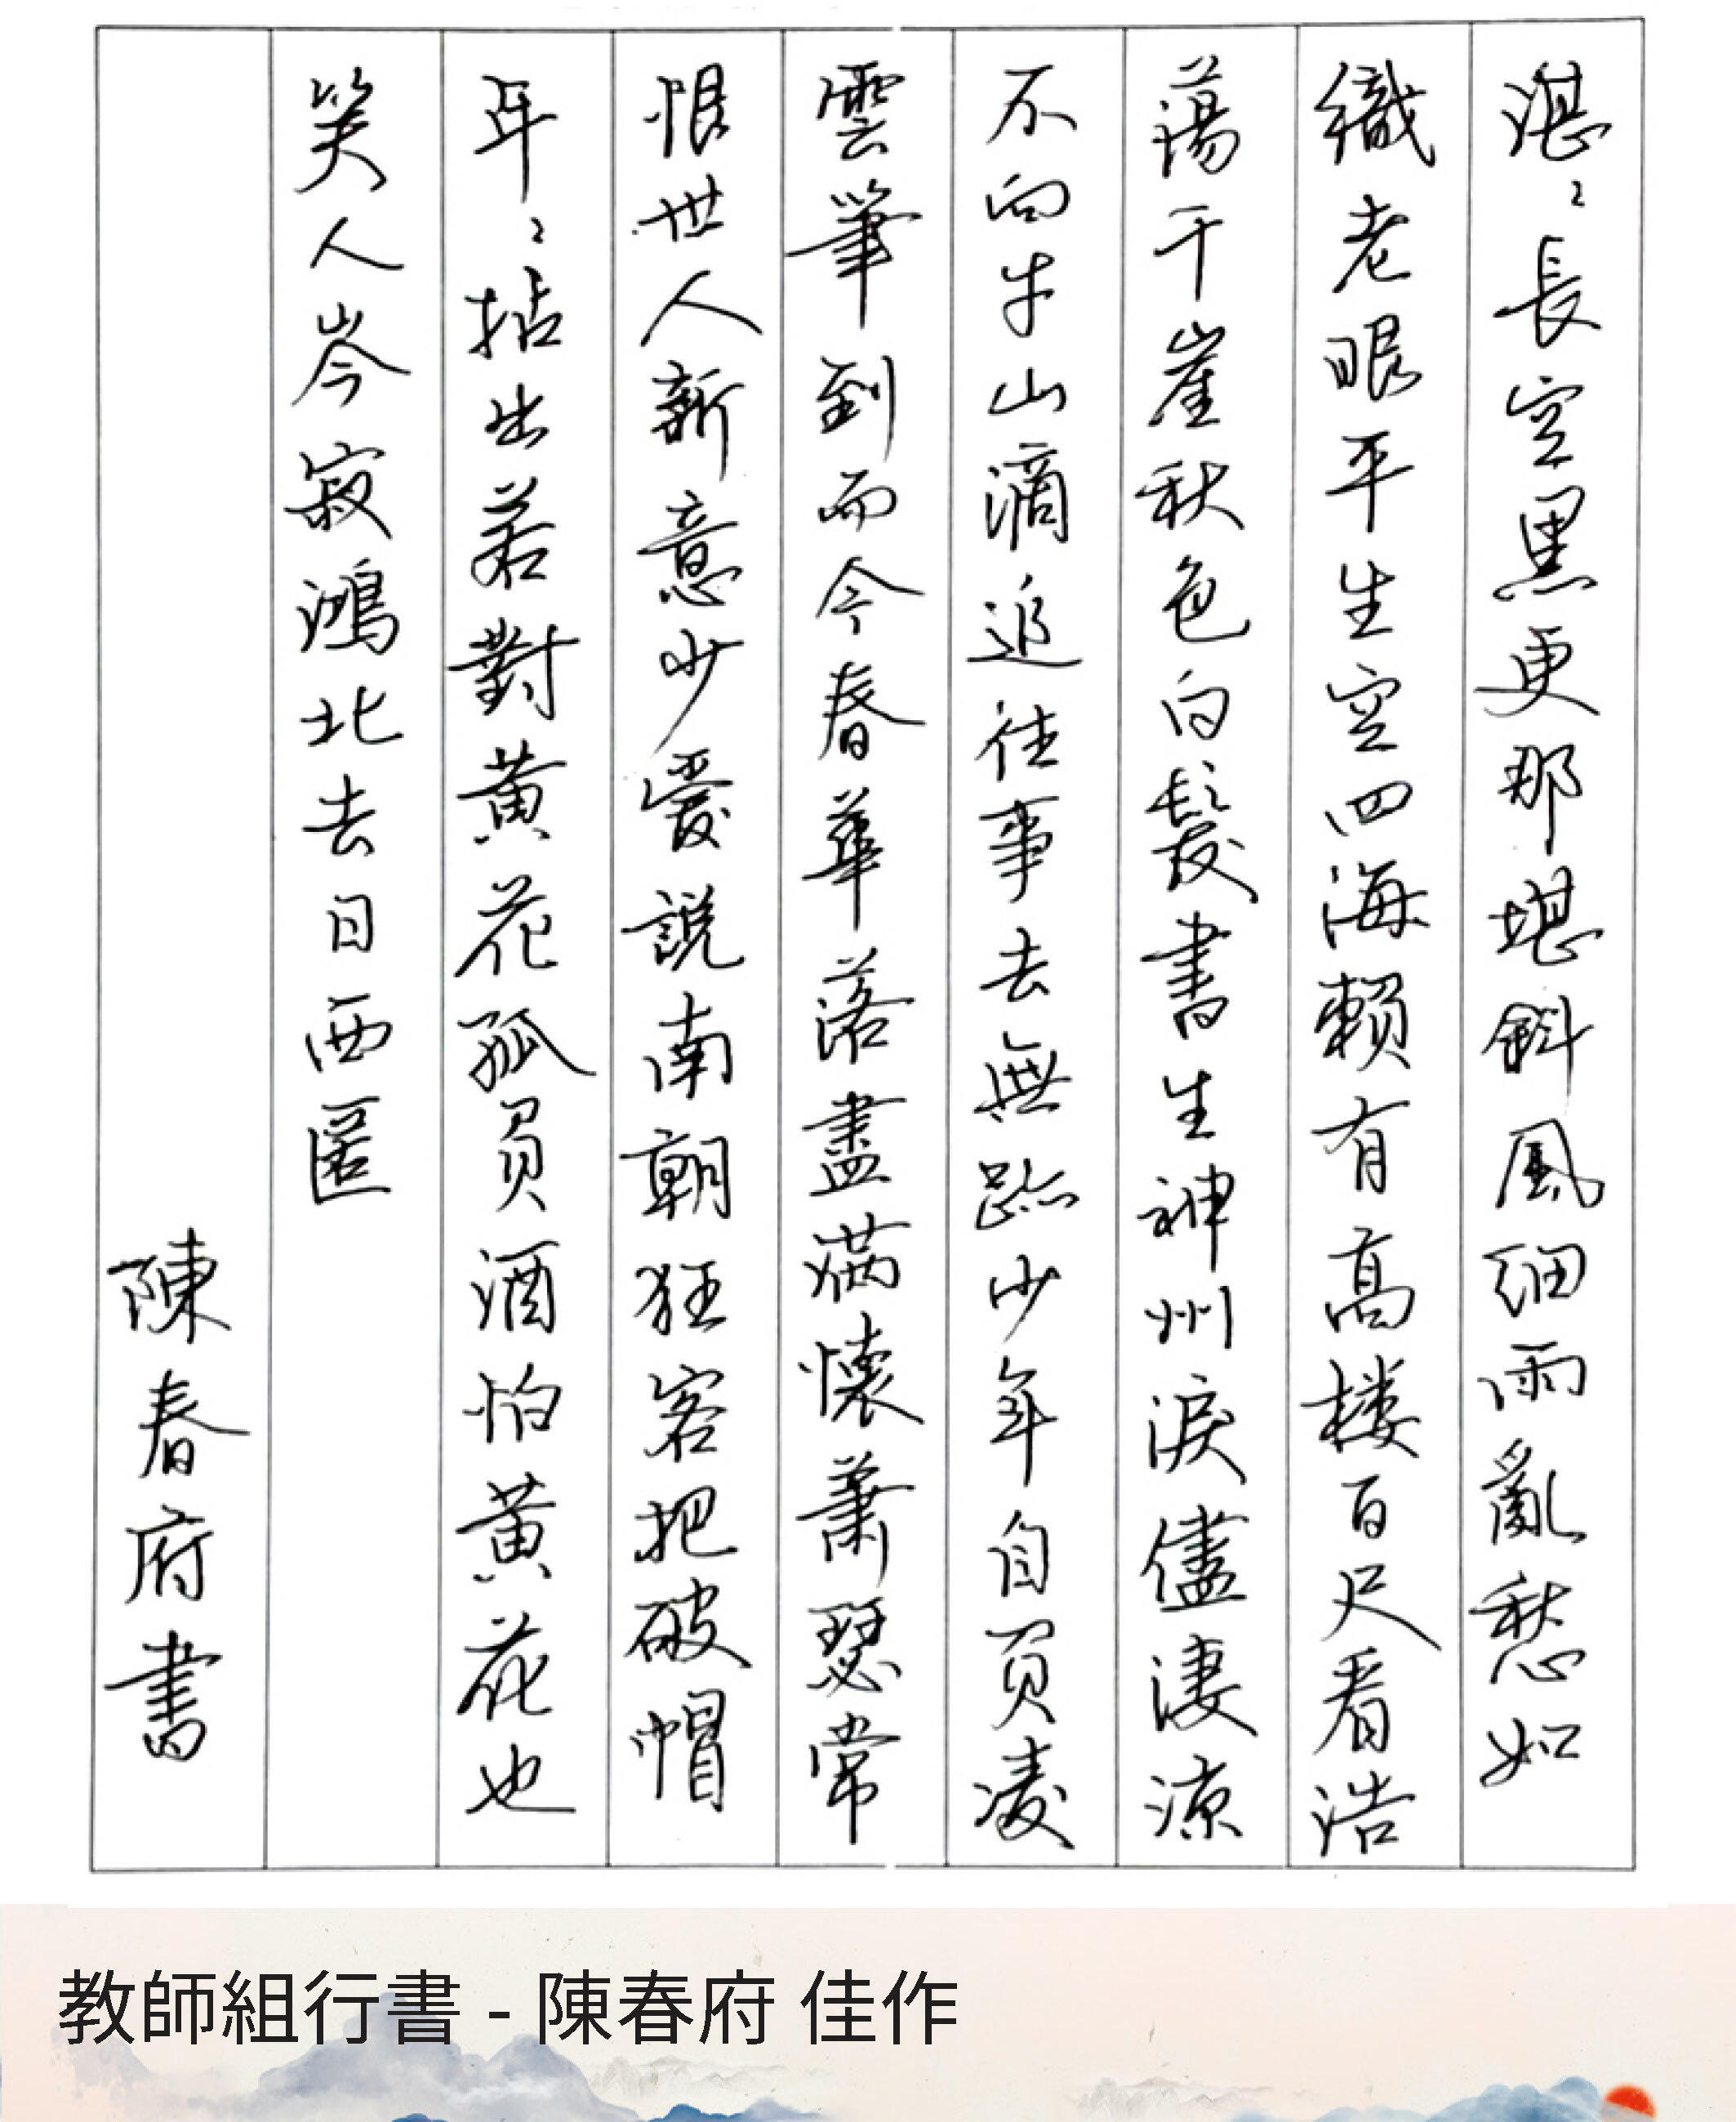 湛〻長空黑更那堪斜風細雨亂愁如
織老眼平生空四海賴有高楼百尺看浩
蕩千崖秋色白髮書生神州淚儘淒涼
不向牛山滴追往事去無跡少年自負凌
雲筆到而今春華落盡滿懷蕭瑟常
恨世人新意少愛說南朝狂客把破帽
年〻拈出若對黃花孤負酒怕黃花也
笑人岑寂鴻北去日西匿
陳春府書
教師組行書 - 陳春府 佳作